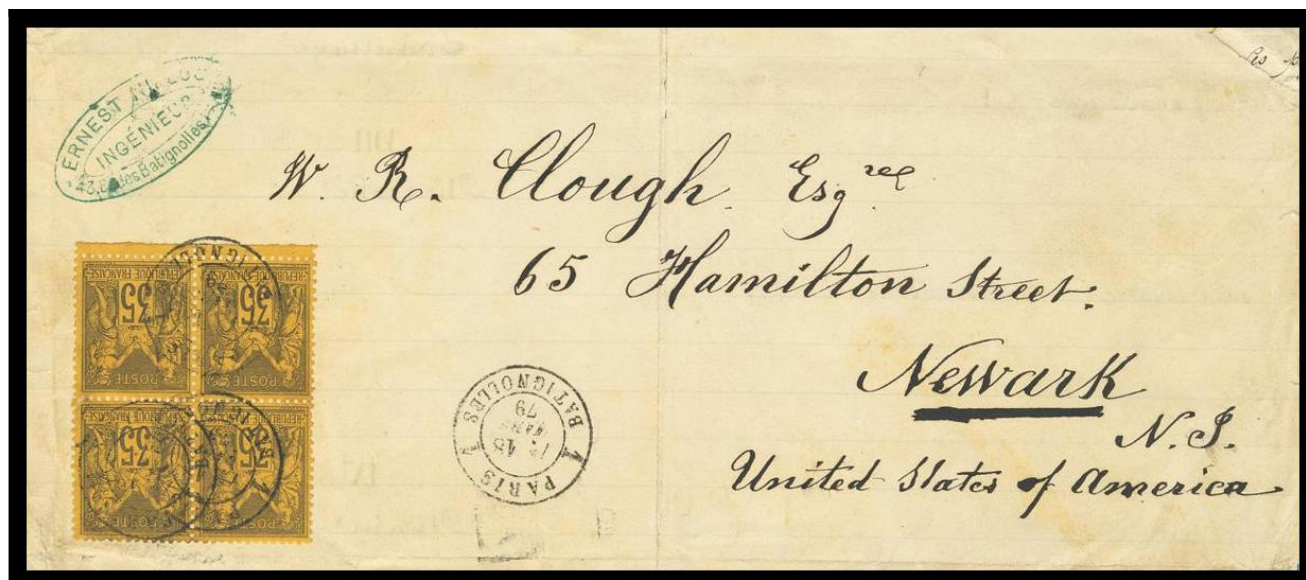 ERNEST
INGÉNIEUR
des Batignolles
W. R. Clough Esq.re
65 Hamilton Street.
Newark
N. J.
United States of America
REPUBLIQUE FRANÇAISE
35
POSTE
REPUBLIQUE FRANÇAISE
35
POSTE
REPUBLIQUE FRANÇAISE
35
POSTE
REPUBLIQUE FRANÇAISE
35
POSTE
PARIS
15
MARS
79
BATIGNOLLES